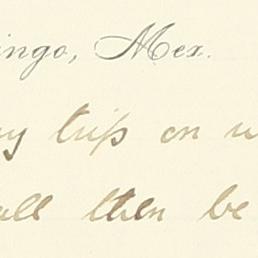 ingo, Mex.
y trip on
all then be